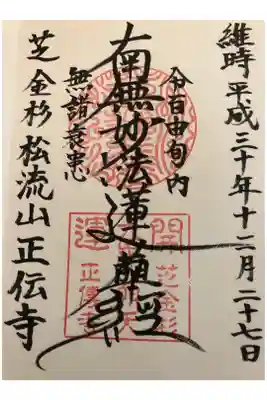 維時平成三十年十二月二十七日
令百由旬内
南無妙法蓮華経
無諸衰患
芝金杉 松流山正伝寺
開運
芝金杉
正傳寺